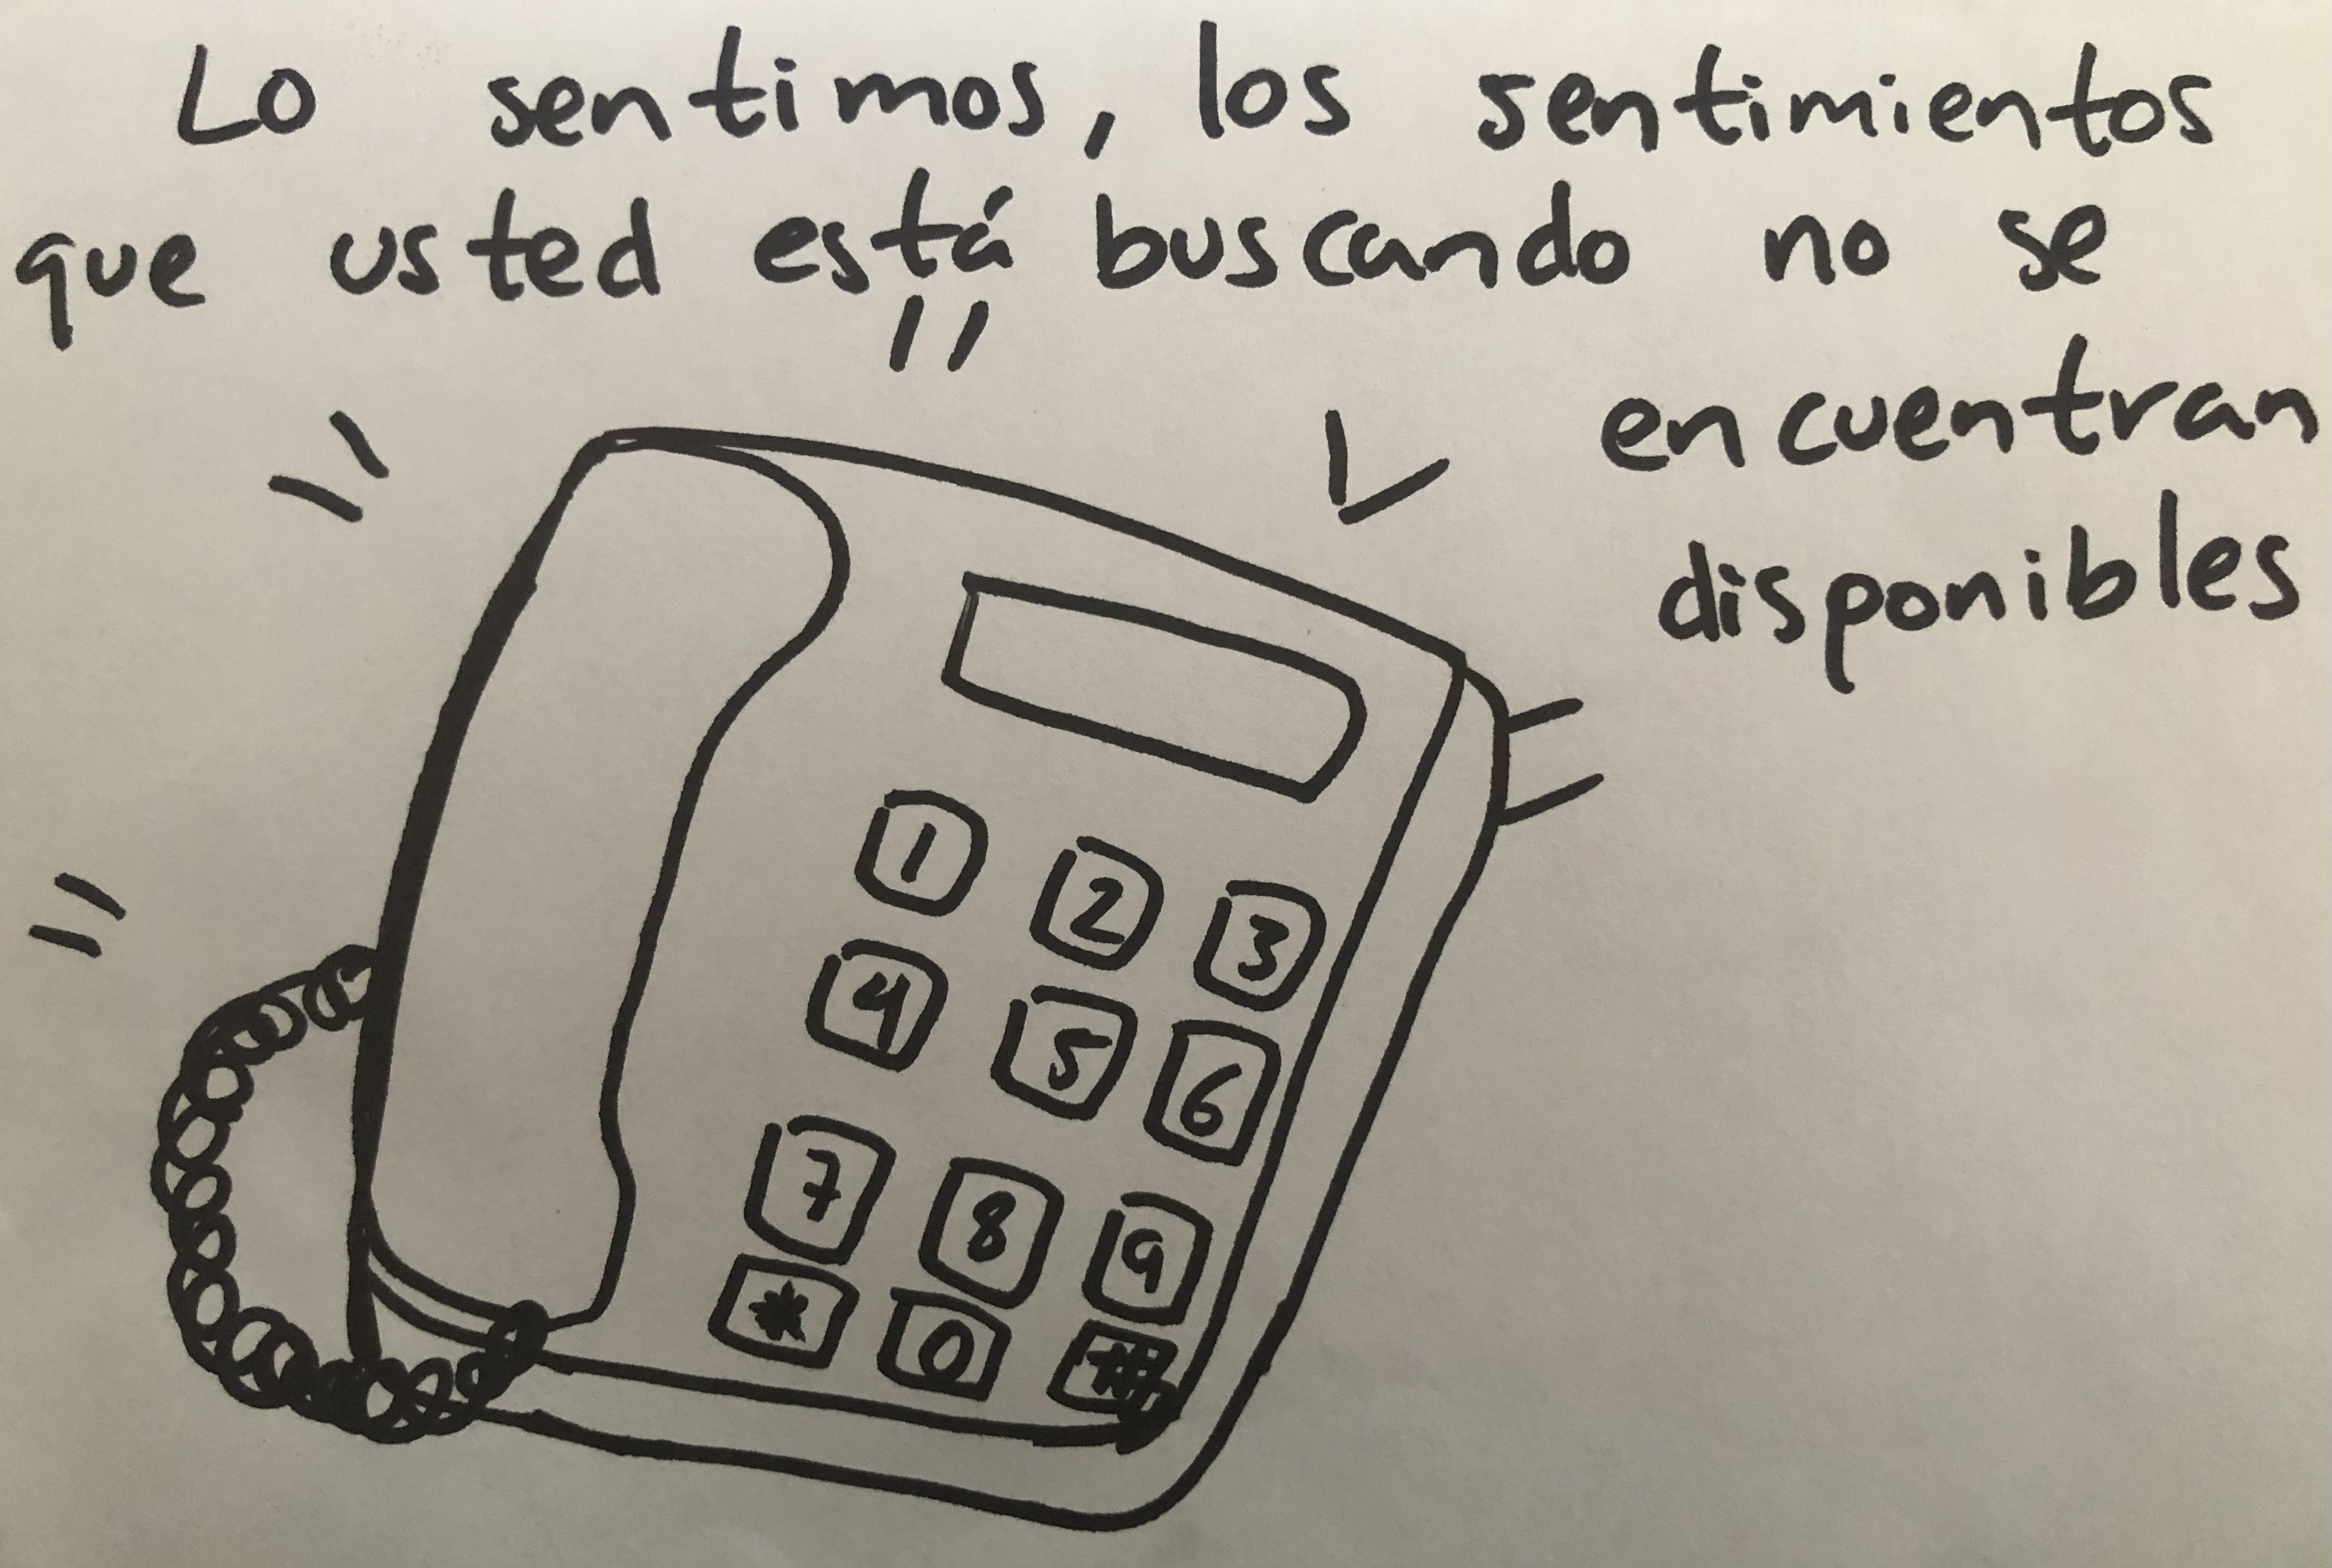 Lo sentimos, los sentimientos
que usted está buscando no se
encuentran
disponibles
1 2 3
4 5 6
7 8 9
* 0 #